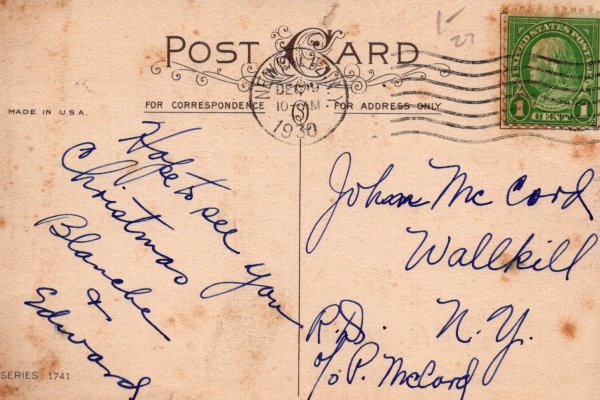 1-
27
POST CARD
UNITED STATES POSTAGE
1 CENT 1
DEC 19
10 AM
1930
MADE IN U.S.A.
FOR CORRESPONDENCE
FOR ADDRESS ONLY
Hope to see you
Christmas
Blanche
&
Edward
John Mc Cord
Wallkill
N.Y.
R.D.
c/o P. McCord
SERIES 1741